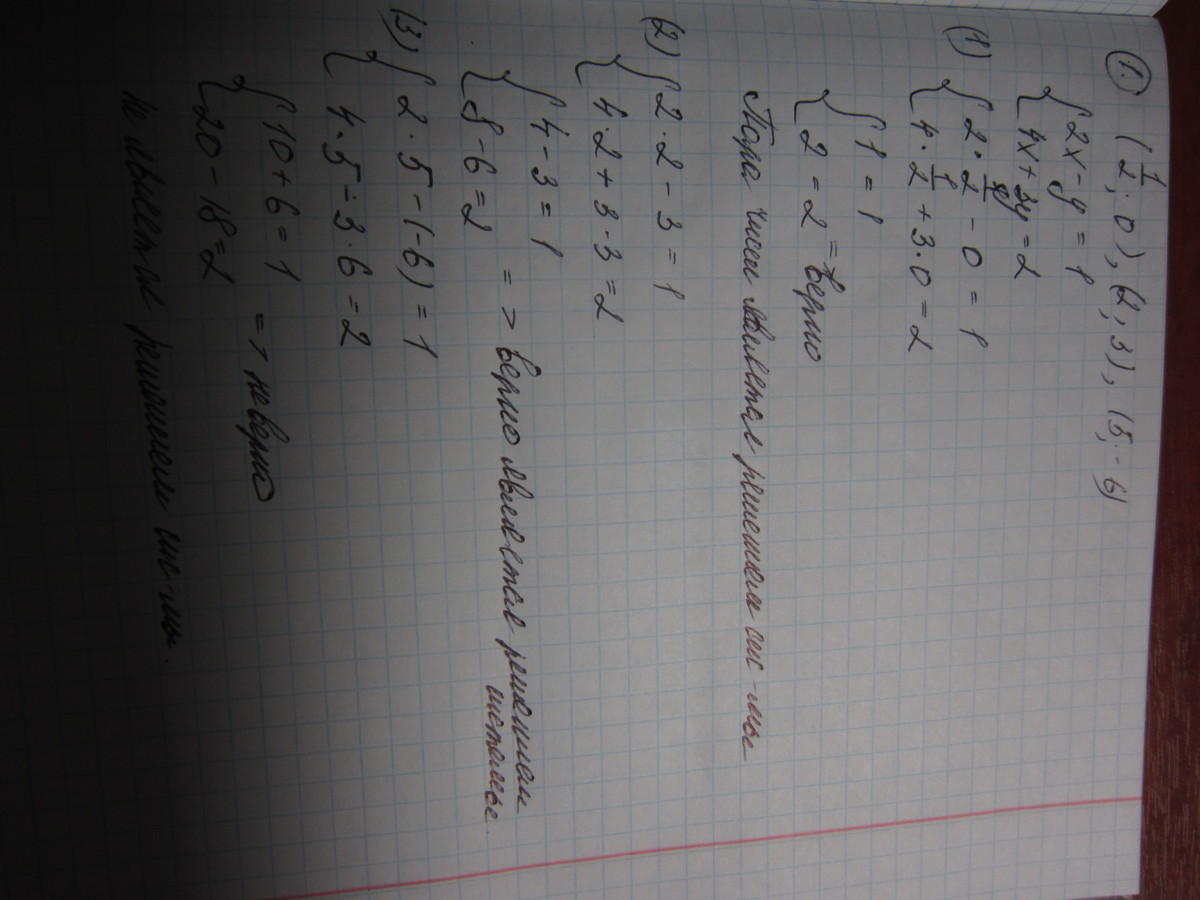 1. (1/2; 0), (2; 3), (5; -6)
{ 2x - y = 1
4x + 3y = 2
(1) { 2 · 1/2 - 0 = 1
4 · 1/2 + 3 · 0 = 2
{ 1 = 1
2 = 2 => верно
Пара чисел является решением сис-мы
(2) { 2 · 2 - 3 = 1
4 · 2 + 3 · 3 = 2
{ 4 - 3 = 1
8 - 6 = 2 => верно является решением
системы.
(3) { 2 · 5 - (-6) = 1
4 · 5 - 3 · 6 = 2
{ 10 + 6 = 1
20 - 18 = 2 => неверно
не является решением сис-мы.